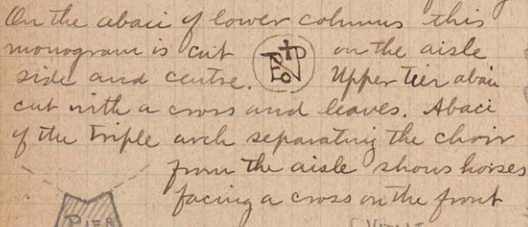 On the abaci of lower columns this
monogram is cut on the aisle
side and centre. Upper tier abaci
cut with a cross and leaves. Abaci
of the triple arch separating the choir
from the aisle shows horses
facing a cross on the front
PIER